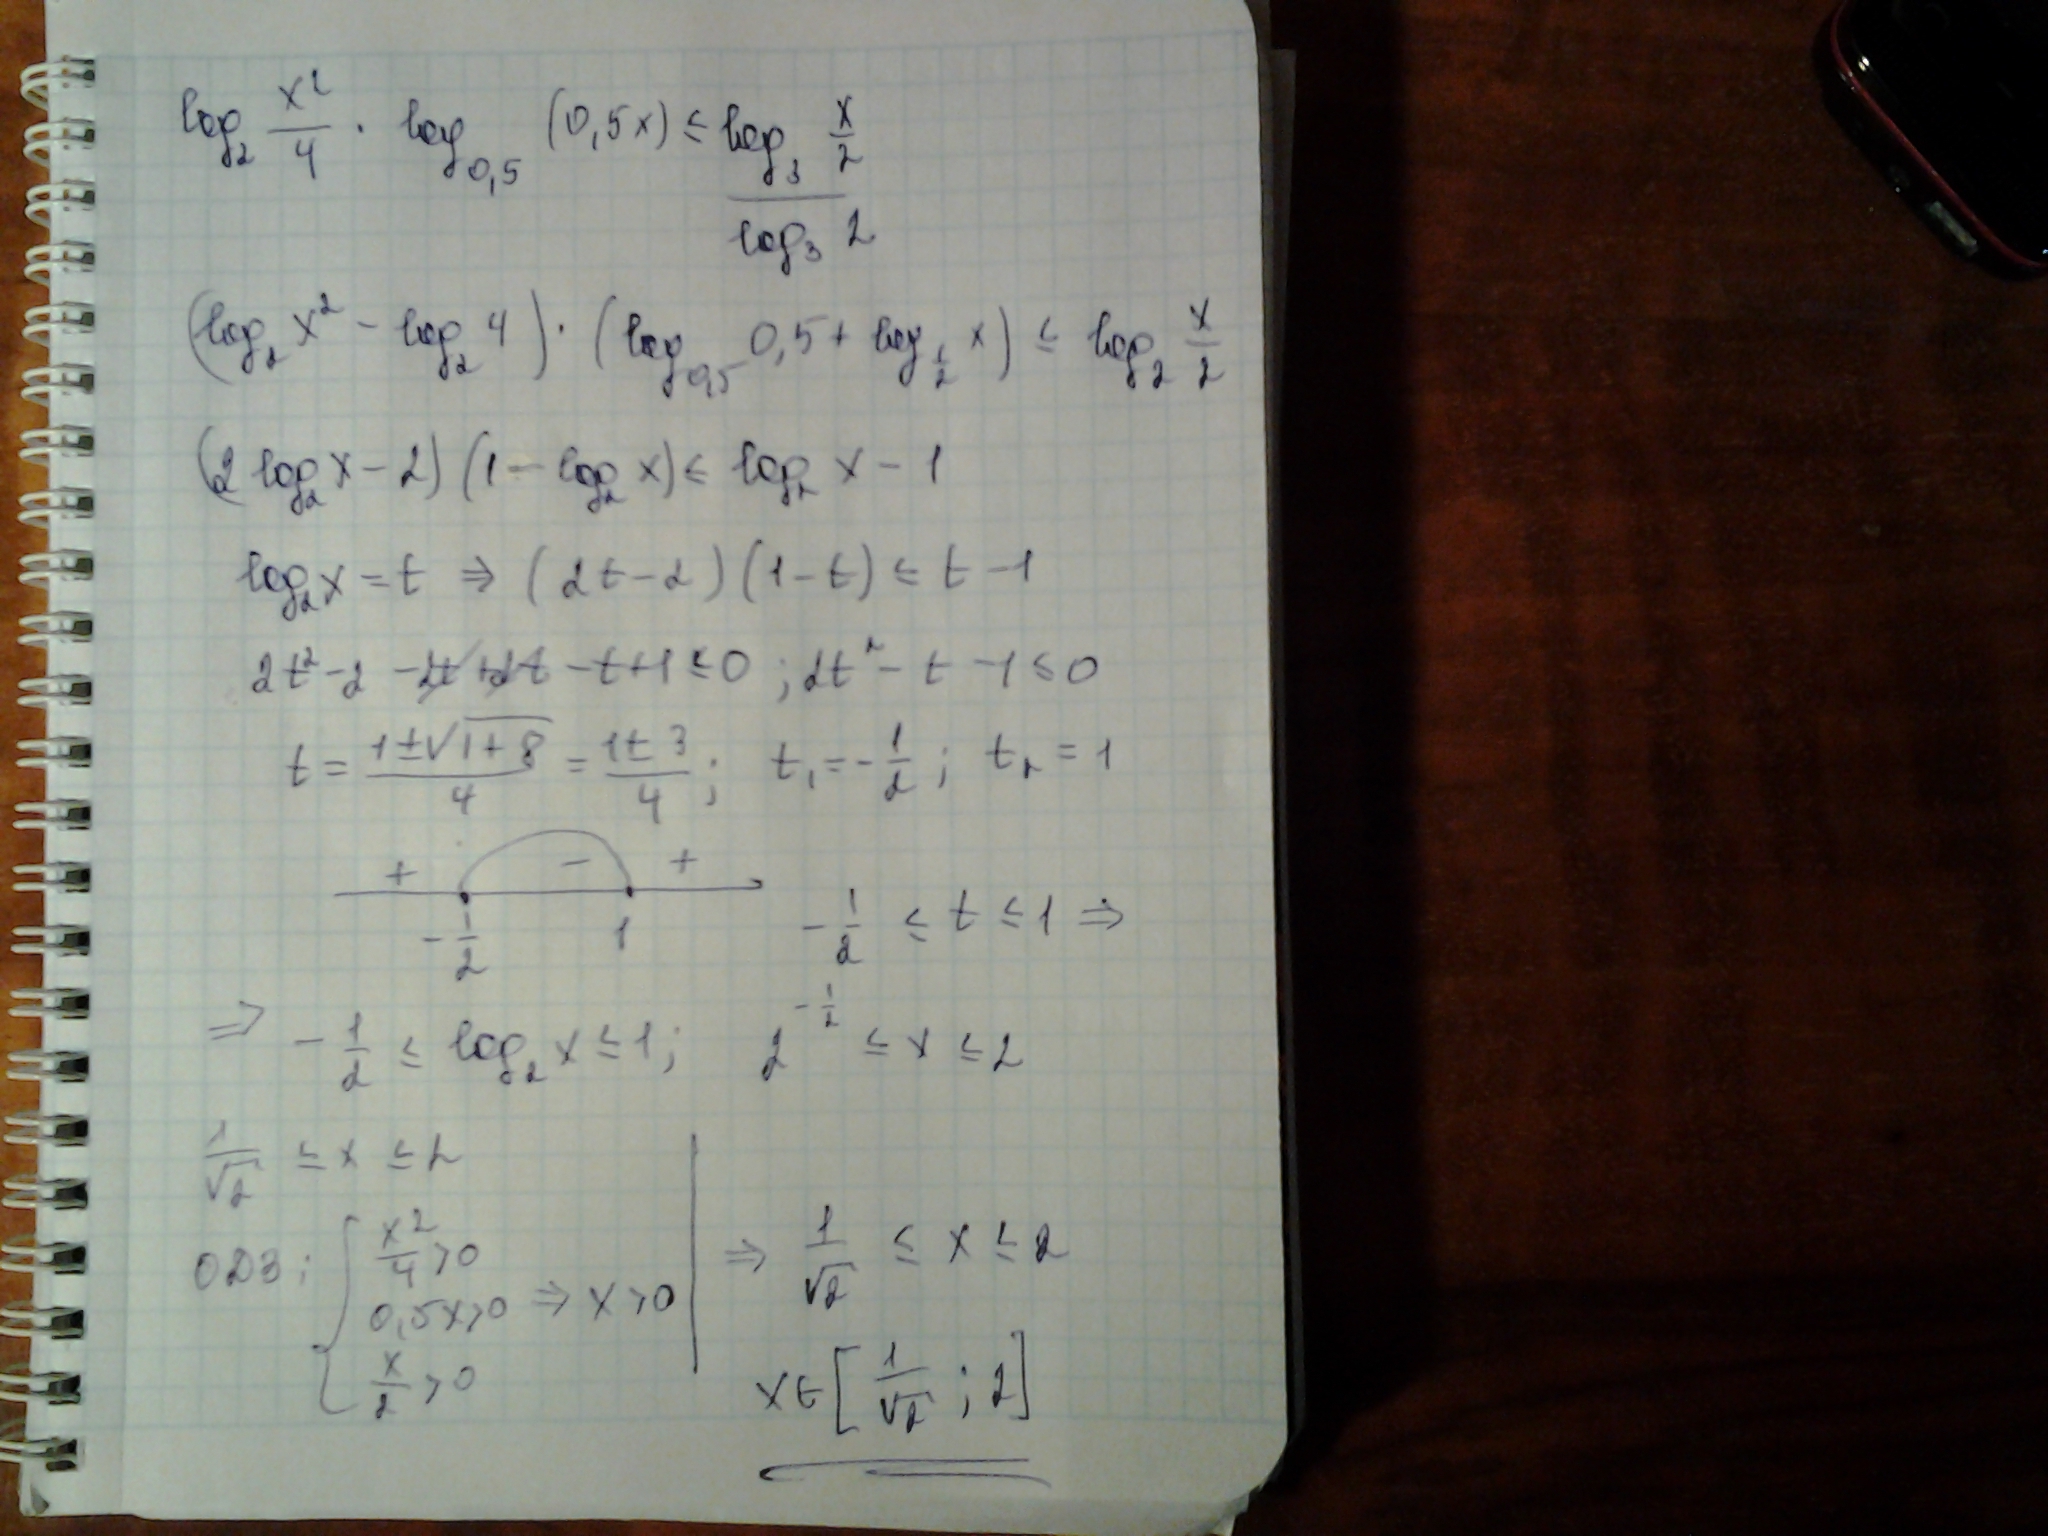 log₂ x²/4 · log₀,₅ (0,5x) ≤ log₃ x/2 / log₃ 2
(log₂ x² - log₂ 4) · (log₀,₅ 0,5 + log_{1/2} x) ≤ log₂ x/2
(2 log₂ x - 2) (1 - log₂ x) ≤ log₂ x - 1
log₂ x = t ⇒ (2t - 2) (1 - t) ≤ t - 1
2t² - 2 - 2t + 2t - t + 1 ≤ 0 ; 2t² - t - 1 ≤ 0
t = (1 ± √(1 + 8))/4 = (1 ± 3)/4 ; t₁ = -1/2 ; t₂ = 1
+ - +
-1/2 1 -1/2 ≤ t ≤ 1 ⇒
⇒ -1/2 ≤ log₂ x ≤ 1 ; 2^{-1/2} ≤ x ≤ 2
1/√2 ≤ x ≤ 2
ОДЗ : { x²/4 > 0
0,5x > 0 ⇒ x > 0 ⇒ 1/√2 ≤ x ≤ 2
x/2 > 0
x ∈ [1/√2 ; 2]